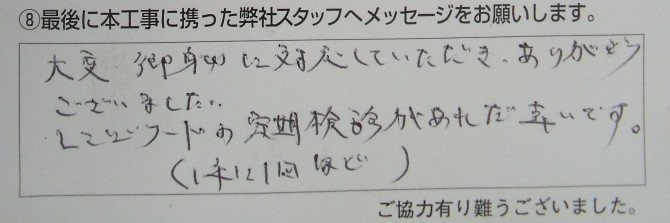 ⑧最後に本工事に携った弊社スタッフへメッセージをお願いします。
大変 御親切に対応していただき、ありがとう
ございました。
レンジフードの定期検診があれだ幸いです。
(1年に1回ほど)
ご協力有り難うございました。